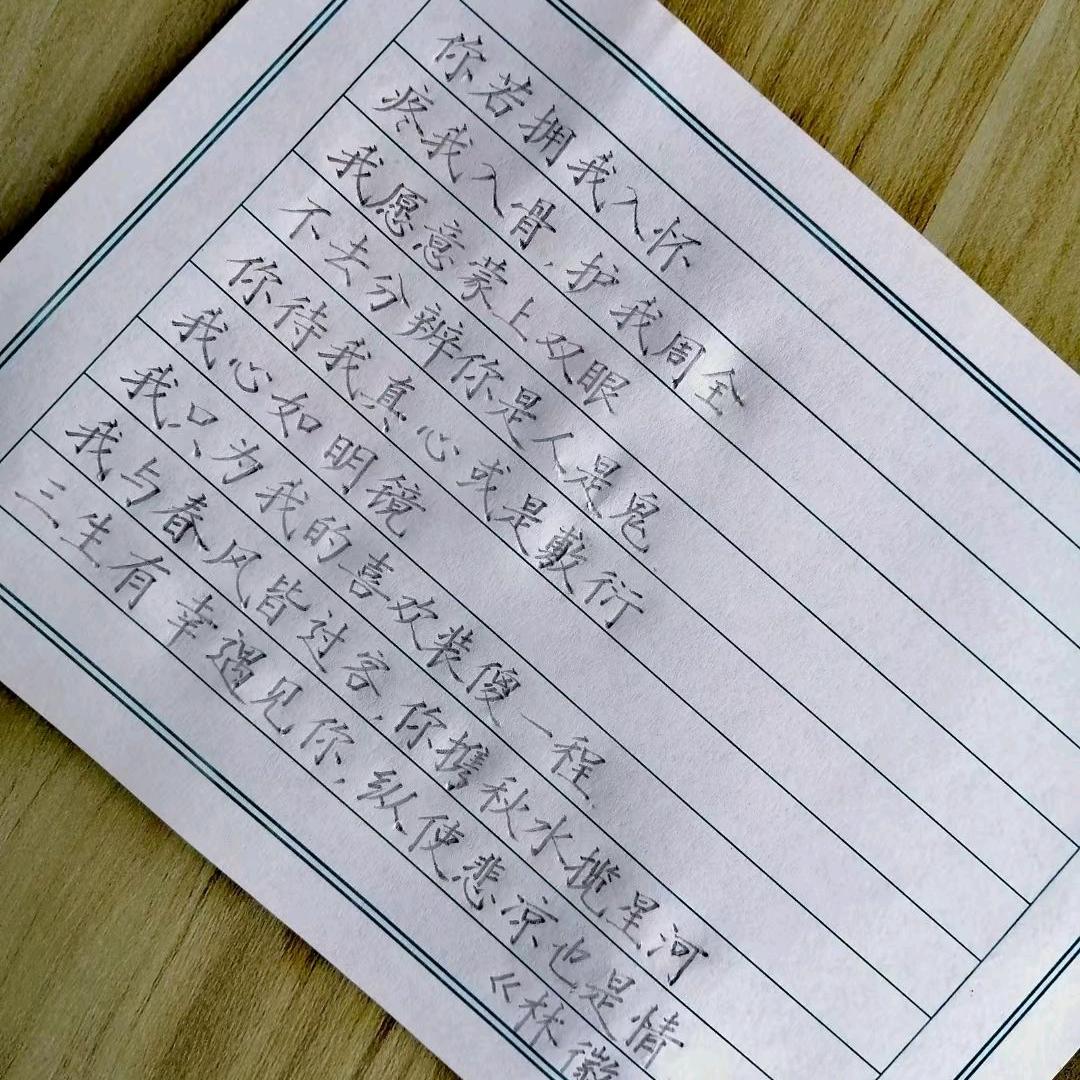 你若拥我入怀
疼我入骨，护我周全
我愿意蒙上双眼
不去分辨你是人是鬼
你待我真心或是敷衍
我心如明镜
我只为我的喜欢装傻一程
我与春风皆过客，你携秋水揽星河
三生有幸遇见你，纵使悲凉也是情
《林徽